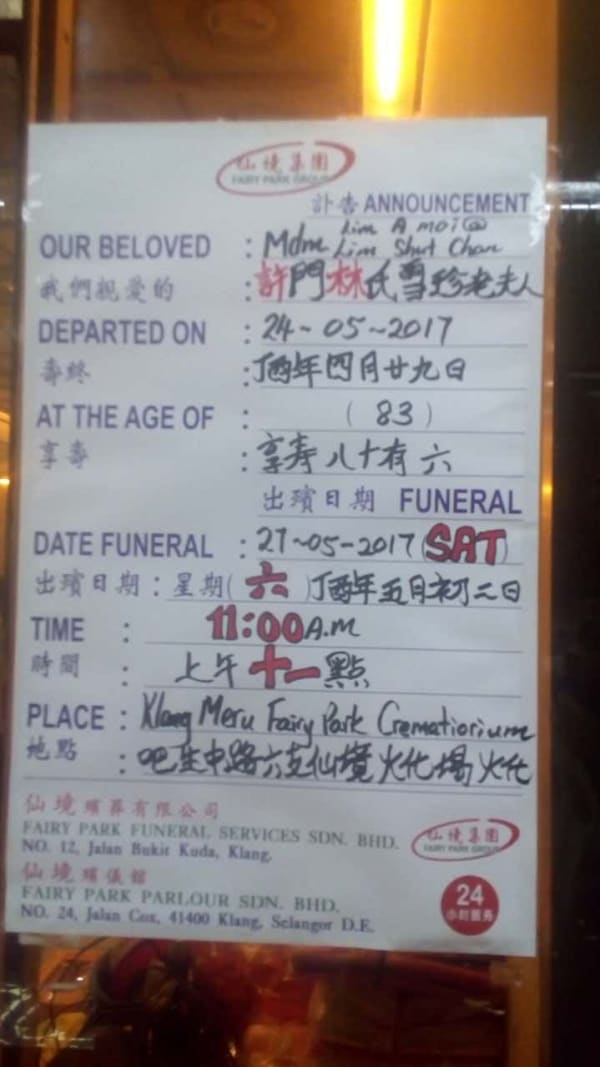 仙境集團
FAIRY PARK GROUP
訃告 ANNOUNCEMENT
Lim A moi @
OUR BELOVED : Mdm Lim Shut Chan
我們親愛的 : 許門林氏雪珍老夫人
DEPARTED ON : 24-05-2017
壽終 : 丁酉年四月廿九日
AT THE AGE OF : (83)
享壽 : 享寿八十有六
出殯日期 FUNERAL
DATE FUNERAL : 27-05-2017 (SAT)
出殯日期 : 星期(六)丁酉年五月初二日
TIME : 11:00 A.M
時間 : 上午十一點
PLACE : Klang Meru Fairy Park Crematiorium
地點 : 吧生中路六支仙境火化場火化
仙境殯葬有限公司
FAIRY PARK FUNERAL SERVICES SDN. BHD.
NO. 12, Jalan Bukit Kuda, Klang.
仙境集團
FAIRY PARK GROUP
仙境殯儀館
FAIRY PARK PARLOUR SDN. BHD.
NO. 24, Jalan Cox, 41400 Klang, Selangor D.E.
24
小时服务